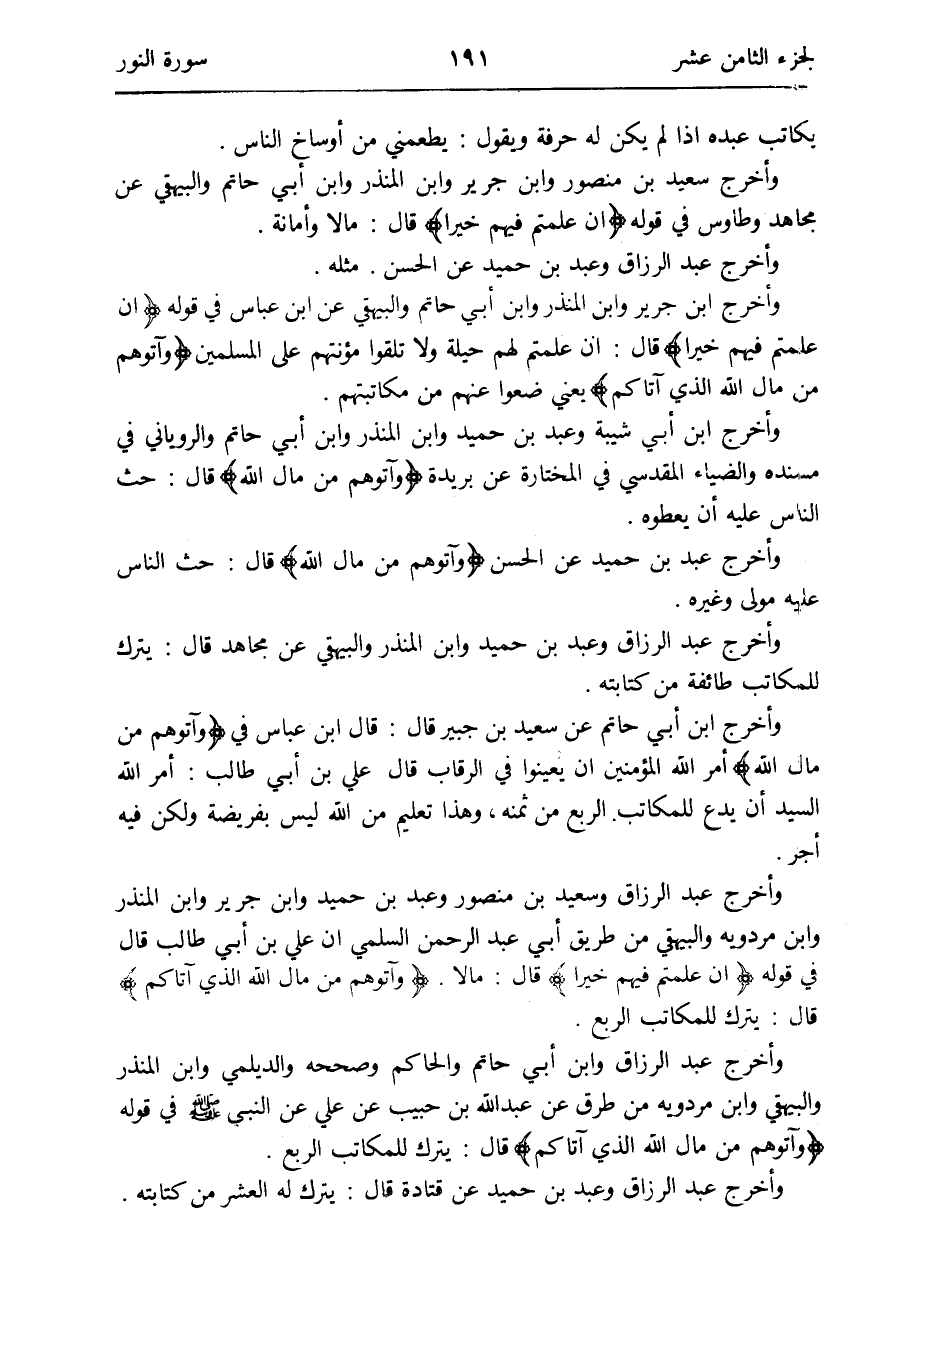 لجزء الثامن عشر ١٩١ سورة النور
يكاتب عبده اذا لم يكن له حرفة ويقول : يطعمني من أوساخ الناس .
وأخرج سعيد بن منصور وابن جرير وابن المنذر وابن أبي حاتم والبيهقي عن
مجاهد وطاوس في قوله ﴿ان علمتم فيهم خيرا﴾ قال : مالا وأمانة .
وأخرج عبد الرزاق وعبد بن حميد عن الحسن . مثله .
وأخرج ابن جرير وابن المنذر وابن أبي حاتم والبيهقي عن ابن عباس في قوله ﴿ ان
علمتم فيهم خيرا﴾ قال : ان علمتم لهم حيلة ولا تلقوا مؤنتهم على المسلمين ﴿وآتوهم
من مال الله الذي آتاكم﴾ يعني ضعوا عنهم من مكاتبتهم .
وأخرج ابن أبي شيبة وعبد بن حميد وابن المنذر وابن أبي حاتم والروياني في
مسنده والضياء المقدسي في المختارة عن بريدة ﴿وآتوهم من مال الله﴾ قال : حث
الناس عليه أن يعطوه .
وأخرج عبد بن حميد عن الحسن ﴿وآتوهم من مال الله﴾ قال : حث الناس
عليه مولى وغيره .
وأخرج عبد الرزاق وعبد بن حميد وابن المنذر والبيهقي عن مجاهد قال : يترك
للمكاتب طائفة من كتابته .
وأخرج ابن أبي حاتم عن سعيد بن جبير قال : قال ابن عباس في ﴿وآتوهم من
مال الله﴾ أمر الله المؤمنين ان يعينوا في الرقاب قال علي بن أبي طالب : أمر الله
السيد أن يدع للمكاتب الربع من ثمنه ، وهذا تعليم من الله ليس بفريضة ولكن فيه
أجر .
وأخرج عبد الرزاق وسعيد بن منصور وعبد بن حميد وابن جرير وابن المنذر
وابن مردويه والبيهقي من طريق أبي عبد الرحمن السلمي ان علي بن أبي طالب قال
في قوله ﴿ ان علمتم فيهم خيرا ﴾ قال : مالا . ﴿ وآتوهم من مال الله الذي آتاكم ﴾
قال : يترك للمكاتب الربع .
وأخرج عبد الرزاق وابن أبي حاتم والحاكم وصححه والديلمي وابن المنذر
والبيهقي وابن مردويه من طرق عن عبدالله بن حبيب عن علي عن النبي ﷺ في قوله
﴿وآتوهم من مال الله الذي آتاكم﴾ قال : يترك للمكاتب الربع .
وأخرج عبد الرزاق وعبد بن حميد عن قتادة قال : يترك له العشر من كتابته .